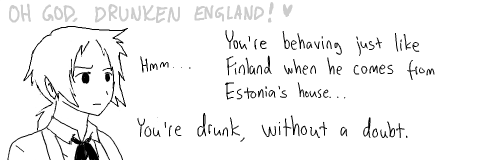 OH GOD, DRUNKEN ENGLAND! ♥
Hmm...
You're behaving just like
Finland when he comes from
Estonia's house...
You're drunk, without a doubt.